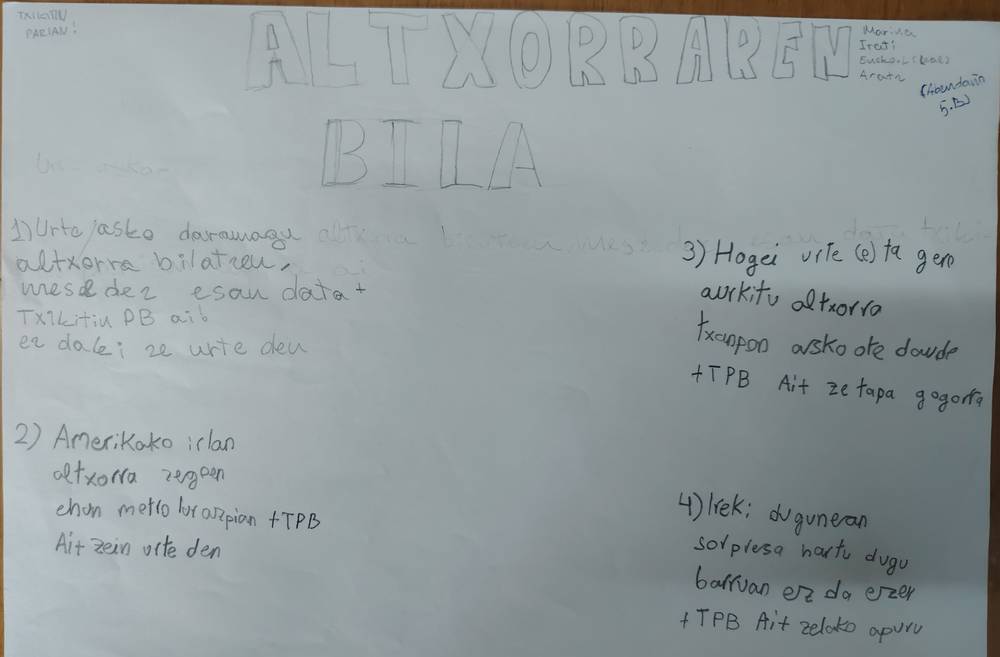 TXIKITIN
PARIAN!
ALTXORRAREN
BILA
Irati
(Abendaño
5.B)
1) Urte asko daramagu
altxorra bilatzen,
mesedez esan data +
Txikitin PB ai!
ez daki ze urte den
2) Amerikako irlan
altxorra zegoen
ehun metro lurazpian +TPB
Ait zein urte den
3) Hogei urte (e)ta gero
aurkitu altxorra
txanpon asko ote daude
+TPB Ait ze tapa gogorra
4) Ireki duguneran
sorpresa hartu dugu
barruan ez da ezer
+TPB Ait zelako apuru